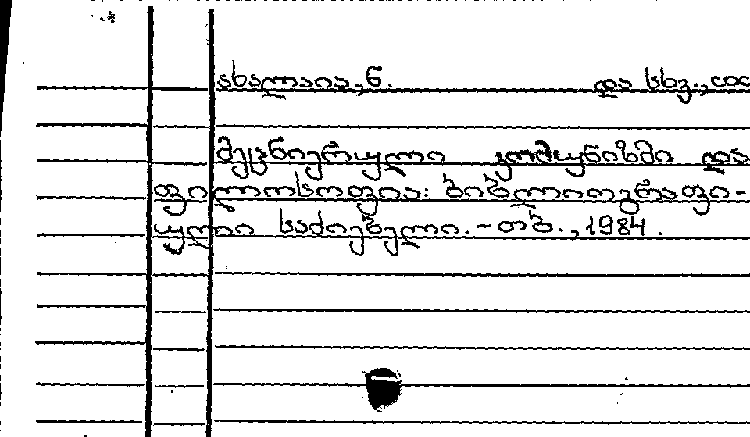 ახალაია, ნ. და სხვ.,
მეცნიერული კომუნიზმი და
ფილოსოფია: ბიბლიოგრაფი-
ული საძიებელი. - თბ., 1984.